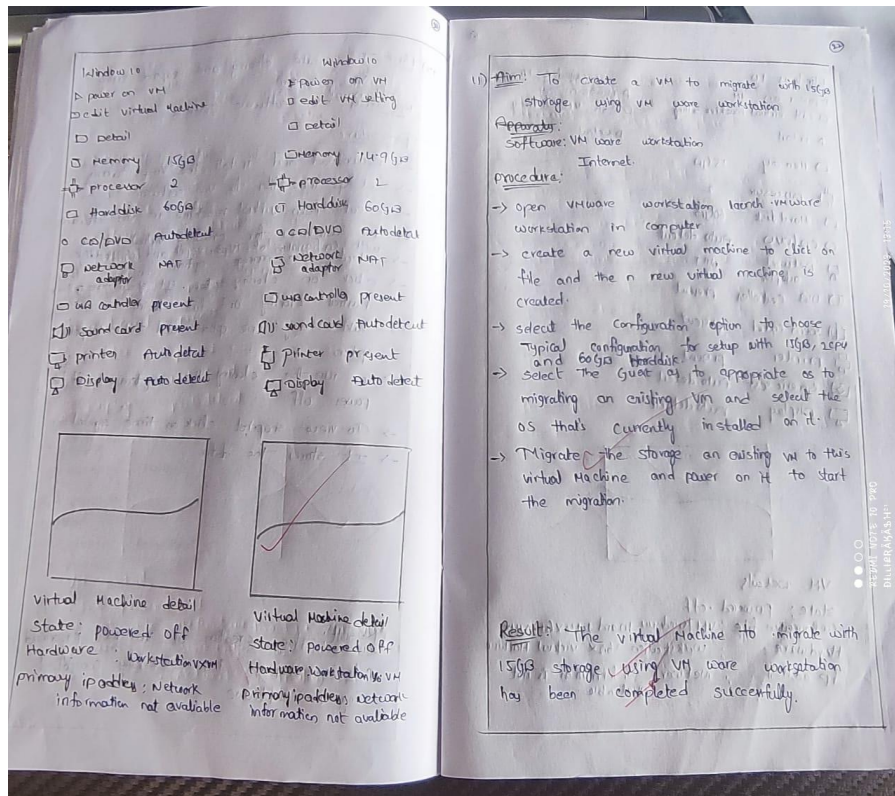 Window 10
▷ power on VM
□ edit virtual Machine
□ Detail
Memory 15GB
processor 2
Harddisk 60GB
CD/DVD Autodetect
Network NAT
adaptor
controller present
Sound card present
printer Autodetect
Display Auto detect
Virtual Machine detail
State: powered off
Hardware : Workstation
primary ipaddress: Network
information not avaliable
Window 10
▷ power on VM
□ edit VM setting
□ Detail
Memory 14.9GB
processor 2
Harddisk 60GB
CD/DVD Autodetect
Network NAT
adaptor
controller present
sound card Autodetect
Printer present
Display Auto detect
Virtual Machine detail
State: powered off
Hardware: Workstation VM
Primary ipaddress: Network
information not avaliable
11) Aim: To create a VM to migrate with 15GB
storage using VM ware workstation
Apparatus:
Software: VM ware workstation
Internet.
procedure:
-> open VMware workstation launch VMware
workstation in computer
-> create a new virtual machine to click on
file and the n new virtual machine is
created.
-> select the configuration option to choose
Typical configuration for setup with 15GB, 2CPU
and 60GB Harddisk
-> Select The Guest os to appropriate os to
migrating an existing VM and select the
OS that's currently installed on it.
-> Migrate the storage an existing VM to this
virtual Machine and power on it to start
the migration.
Result: The virtual Machine to migrate with
15GB storage using VM ware
has been completed
REDMI NOTE 10 PRO
DILLIPRAKASH